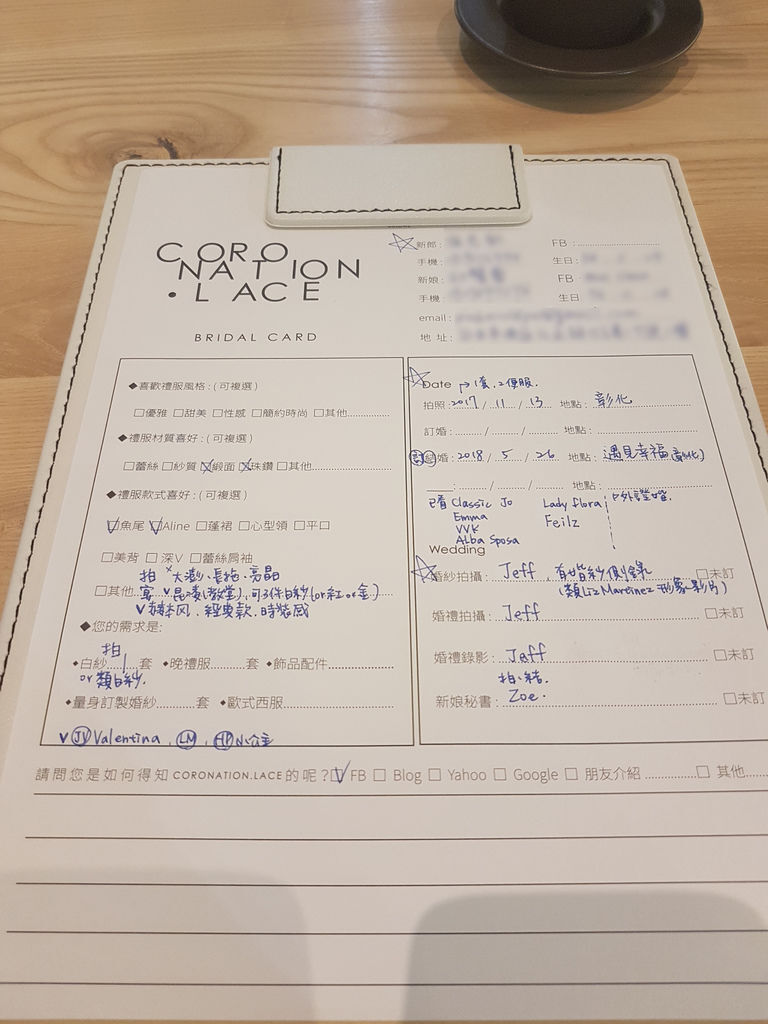 CORO
NATION
•LACE
BRIDAL CARD
新郎: FB:
手機: 生日:
新娘: FB
手機: 生日
email:
地址:
◆喜歡禮服風格:(可複選)
□優雅 □甜美 □性感 □簡約時尚 □其他
◆禮服材質喜好:(可複選)
□蕾絲 □紗質 □緞面 □珠鑽 □其他
◆禮服款式喜好:(可複選)
□魚尾 □Aline □蓬裙 □心型領 □平口
□美背 □深V □蕾絲肩袖
拍 大澎、長拖、亮晶
□其他 宴 V 昆凌(教堂), 可3件白紗(or紅or金)
經典款、時裝感
◆您的需求是:
拍
•白紗 1 套 •晚禮服 套 •飾品配件
or 類白紗.
•量身訂製婚紗 套 •歐式西服
V JV Valentina, LM, HP
Date 1套,2便服.
拍照: 2017 / 11 / 13 地點: 彰化
訂婚: / / 地點:
結婚: 2018 / 5 / 26 地點: 遇見幸福(彰化)
: / / 地點:
已看 Classic Jo Lady flora 戶外證婚.
Emma Feilz
VVK
Alba Sposa
Wedding
婚紗拍攝: Jeff 有婚紗側錄 □未訂
(類Liz Martinez 形象影片)
婚禮拍攝: Jeff □未訂
婚禮錄影: Jeff □未訂
拍、結.
新娘秘書: Zoe. □未訂
請問您是如何得知 CORONATION.LACE 的呢? □ FB □ Blog □ Yahoo □ Google □ 朋友介紹 □ 其他